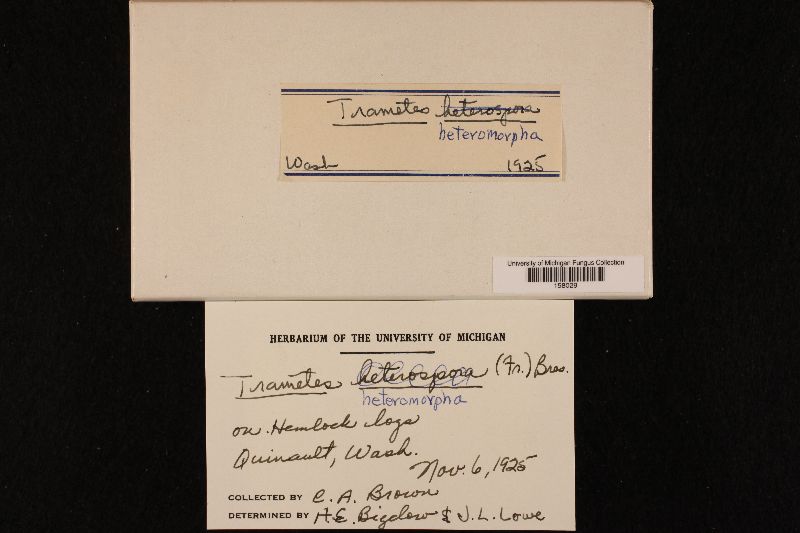 Trametes heterospora
heteromorpha
Wash 1925
University of Michigan Fungus Collection
158029
HERBARIUM OF THE UNIVERSITY OF MICHIGAN
Trametes heterospora (Fr.) Bres.
heteromorpha
on Hemlock logs
Quinault, Wash.
Nov. 6, 1925
COLLECTED BY C. A. Brown
DETERMINED BY H.E. Bigelow & J. L. Lowe